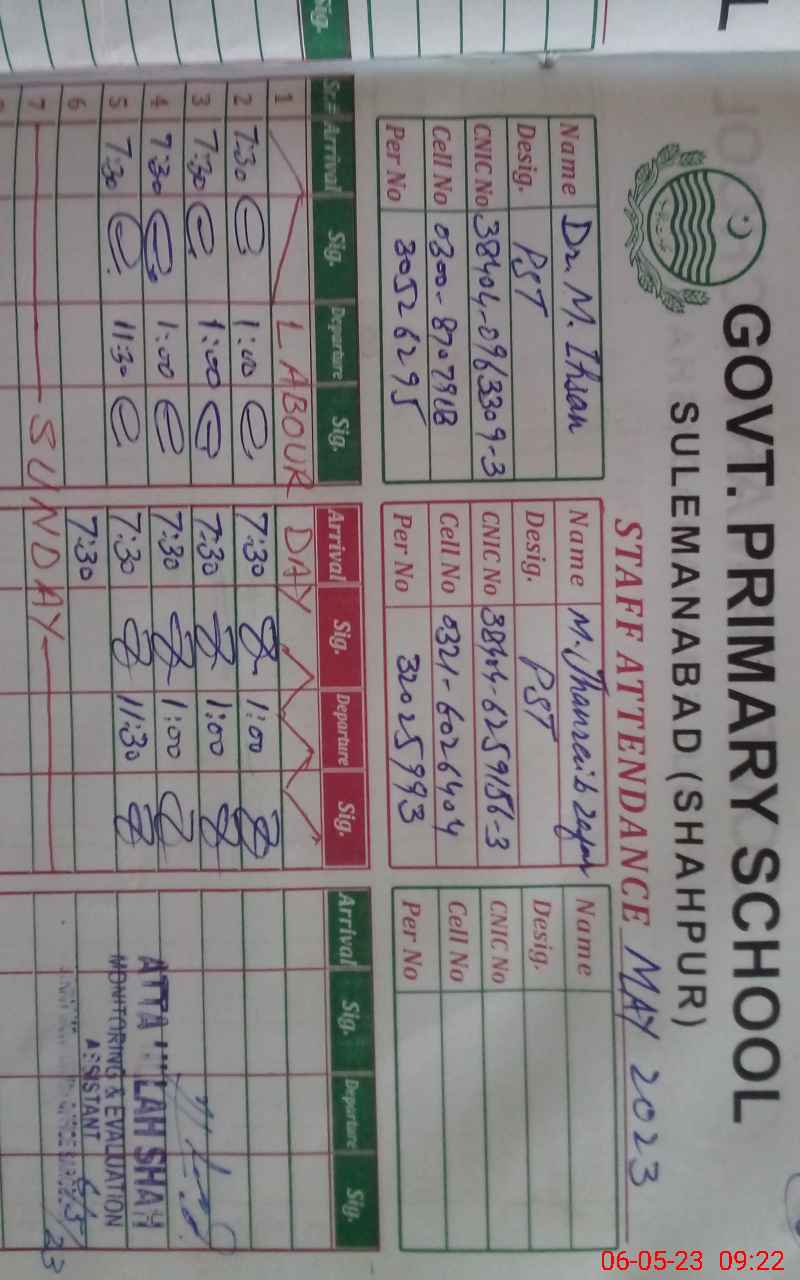 GOVT. PRIMARY SCHOOL
SULEMANABAD (SHAHPUR)
STAFF ATTENDANCE MAY 2023
Name Dr. M. Ihsan
Desig. PST
CNIC No 38404-0963309-3
Cell No 0300-8707918
Per No 30526295
Name M. Jhanzaib Zafar
Desig. PST
CNIC No 38404-6259156-3
Cell No 0321-6026404
Per No 32025993
Name
Desig.
CNIC No
Cell No
Per No
Sig.
Sr.# Arrival Sig. Departure Sig. Arrival Sig. Departure Sig. Arrival Sig. Departure Sig.
1 LABOUR DAY
2 7:30 1:00 7:30 1:00
3 7:30 1:00 7:30 1:00
4 7:30 1:00 7:30 1:00
5 7:30 11:30 7:30 11:30
6 7:30
7 SUNDAY
ATTA ULLAH SHAH
MONITORING & EVALUATION
ASSISTANT
6/5/23
06-05-23 09:22